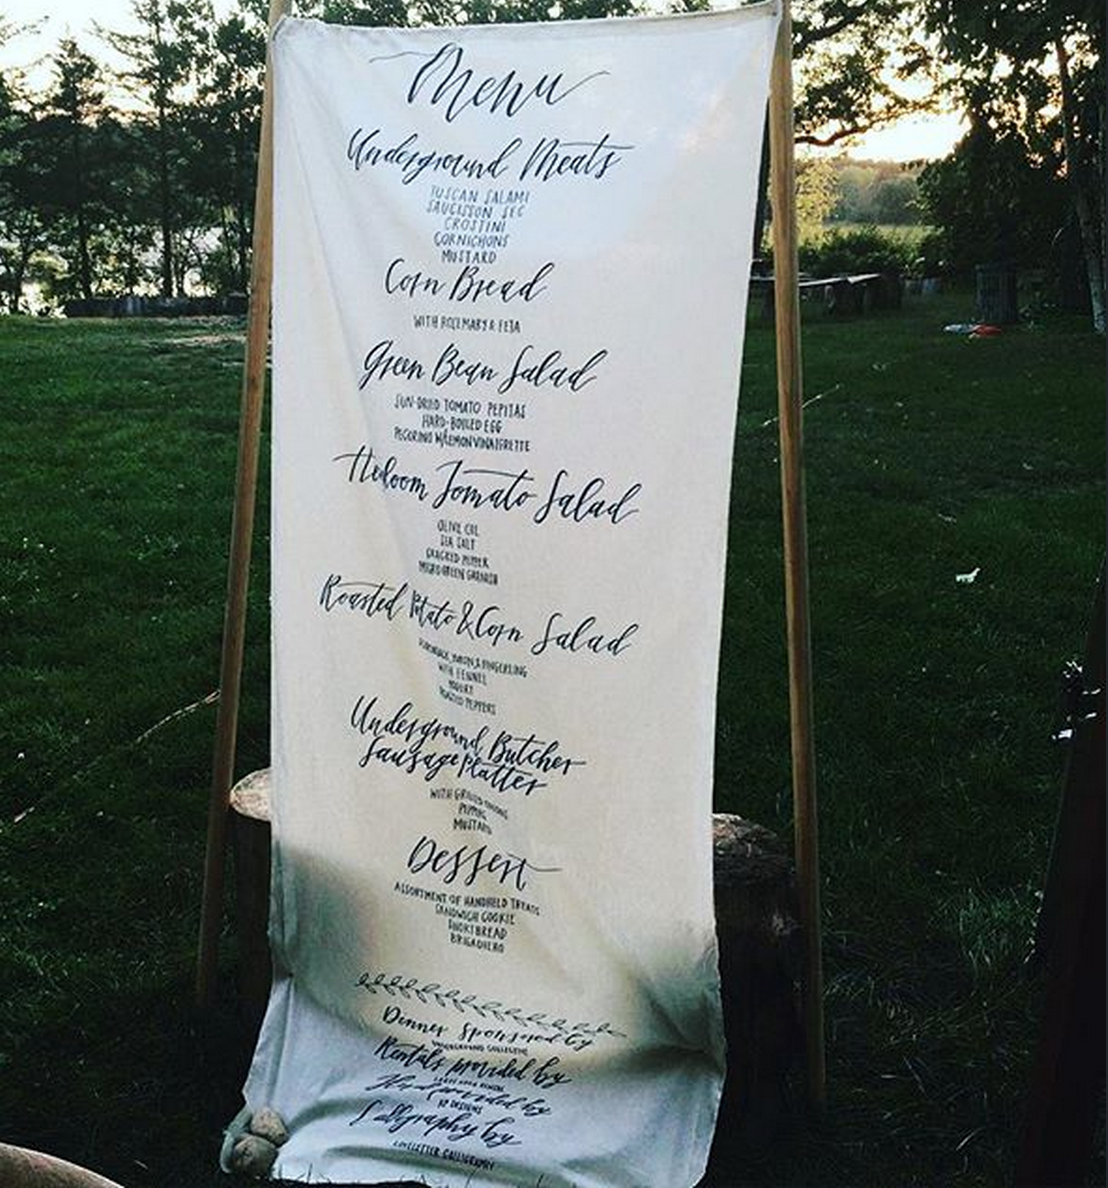 Menu
Underground Meats
TUSCAN SALAMI
SAUCISSON SEC
CROSTINI
CORNICHONS
MUSTARD
Corn Bread
WITH ROSEMARY & FETA
Green Bean Salad
SUN-DRIED TOMATO PEPITAS
HARD-BOILED EGG
PECORINO W/LEMON VINAIGRETTE
Heirloom Tomato Salad
OLIVE OIL
SEA SALT
CRACKED PEPPER
MICROGREEN GARNISH
Roasted Potato & Corn Salad
& FINGERLING
WITH FENNEL
YOGURT
ROASTED PEPPERS
Underground Butcher
Sausage Platter
WITH GRILLED ONIONS
PEPPERS
MUSTARD
Dessert
ASSORTMENT OF HANDHELD TREATS
SANDWICH COOKIE
SHORTBREAD
BRIGADEIRO
Dinner sponsored by
UNDERGROUND COLLECTIVE
Rentals provided by
provided by
DESIGNS
Calligraphy by
LOVELETTER CALLIGRAPHY